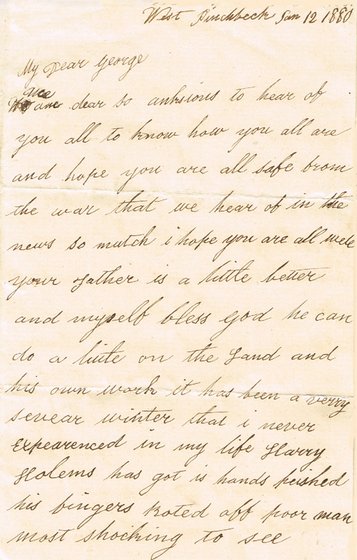 West Pinchbeck Jan 12 1880
My Dear George
We are dear so anksious to hear of
you all to know how you all are
and hope you are all safe from
the war that we hear of in the
news so mutch i hope you are all well
your Father is a little better
and myself bless god he can
do a little on the Land and
his own work it has been a verry
sevear winter that i never
Expearenced in my life Harry
Holems has got is hands
his fingers Roted off poor man
most shocking to see